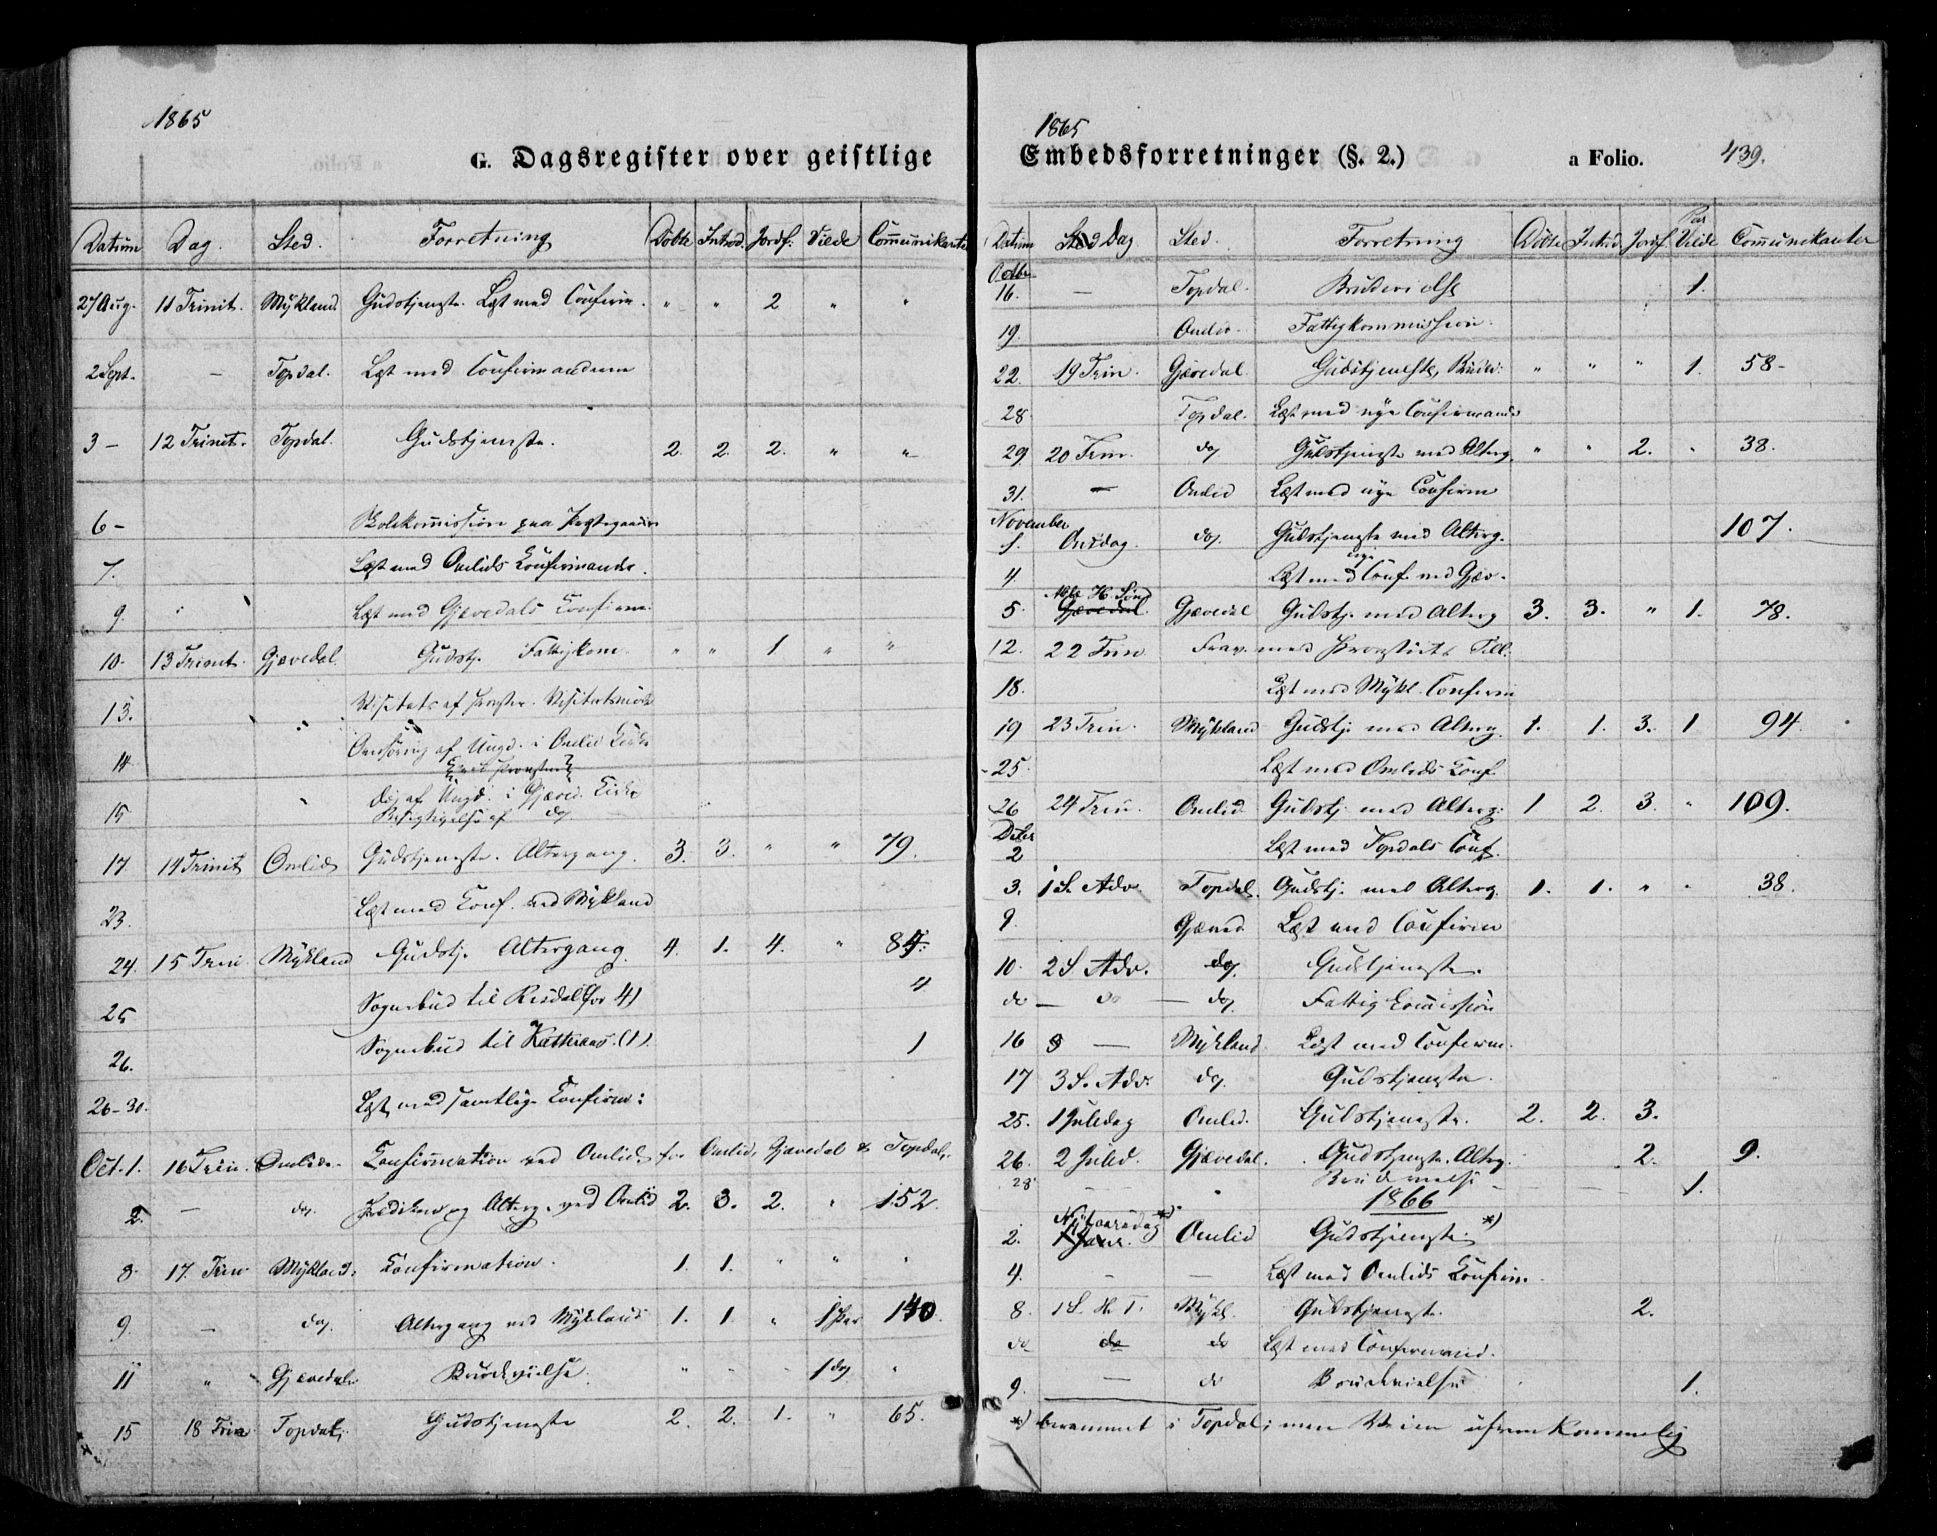 1865
G. Dagsregister over geistlige
Datum Dag. Sted. Forretning Döbte Introd. Jordf. Viede Communikanter
27 Aug. 11 Trinit. Mykland Gudstjeneste. Læst med Confirm. " " 2 " "
2 Sept. – Topdal. Læst med Confirmanderne
3 – 12 Trinit. Topdal. Gudstjeneste. 2. 2. 2. " "
6 – Skolekommission paa Præstegaarden
7. Læst med Omlids Confirmander.
9. Læst med Gjævedals Confirm.
10. 13 Trinit. Gjævedal. Gudstj. Fattigkom. " " 1 " "
13. Visitats af Provsten. Visitatsmöde
14 Overhöring af Ungd. i Omlid Kirke
15 do af Ungd. i Gjæved. Kirke
Besigtigelse af do
17 14 Trinit Omlid Gudstjeneste. Altergang. 3. 3. " " 79.
23. Læst med Conf. ved Mykland
24. 15 Trin Mykland Gudstj. Altergang. 4. 1. 4. " 84.
25 Sognebud til Risdal (for 4) 4
26. Sognebud til (1). 1
26–30. Læst med samtlige Confirm:
Oct. 1. 16 Trin. Omlid. Confirmation ved Omlid for Omlid, Gjævedal & Topdal.
2. – do. Prædiken og Alterg. ved Omlid 2. 3. 2. " 152.
8. 17. Trin. Mykland. Confirmation. 1. 1. " " "
9. – do. Altergang ved Mykland 1. 1. " 1 Par 140.
11 " Gjævedal. Brudevielse. " " " 1 do "
15 18 Trin Topdal. Gudstjeneste 2. 2. 1. " 65.
1865
Embedsforretninger (§. 2.) a Folio. 439.
Datum Sted Dag Sted. Forretning Döbte Introd. Jordf. Par Viede Communikanter
Octbr
16. – Topdal. Brudevielse 1.
19. Omlid. Fattigkommission.
22. 19 Trin. Gjævedal. Gudstjeneste, Brudev. " " " 1. 58 –
28 Topdal. Læst med nye Confirmander
29. 20 Trin. do Gudstjeneste med Alterg. " " 2. " 38.
31. – Omlid Læst med nye Confirm
November
1. Onsdag. do. Gudstjeneste med Alterg. 107.
4 Læst med nye Conf. ved Gjæv.
5. Alle H. Sönd Gjævedal. Gjævedal Gudstj. med Alterg 3. 3. " 1. 78.
12. 22 Trin. Frav. med Provstiets Till.
18. Læst med Mykl. Confirm
19 23 Trin. Mykland Gudstj. med Alterg. 1. 1. 3. 1 94.
25. Læst med Omlids Conf.
26 24 Trin. Omlid. Gudstj. med Alterg: 1 2. 3. " 109.
Decbr
2 Læst med Topdals Conf.
3. 1 S. Adv. Topdal. Gudstj. med Alterg. 1. 1. " " 38.
9. Gjæved. Læst med Confirm
10. 2 S Adv. do. Gudstjeneste.
do – do – do. Fattig Comission
16 – Mykland. Læst med Confirm.
17 3 S. Adv. do. Gudstjeneste.
25. 1 Juledag Omlid. Gudstjeneste. 2. 2. 3.
26. 2 Juled. Gjævedal. Gudstjeneste. Alterg. 2. 9.
28 – " Brudevielse – – – 1.
1866
2. Nytaarsdag *) 1 Janr. Omlid Gudstjeneste. *)
4. – – Læst med Omlids Confirm.
8. 1 S. H. T. Mykl. Gudstjeneste. 2.
do do do Læst med Confirmand.
9. – do Brudevielse 1.
*) berammet i Topdal; men Veien ufremkommelig